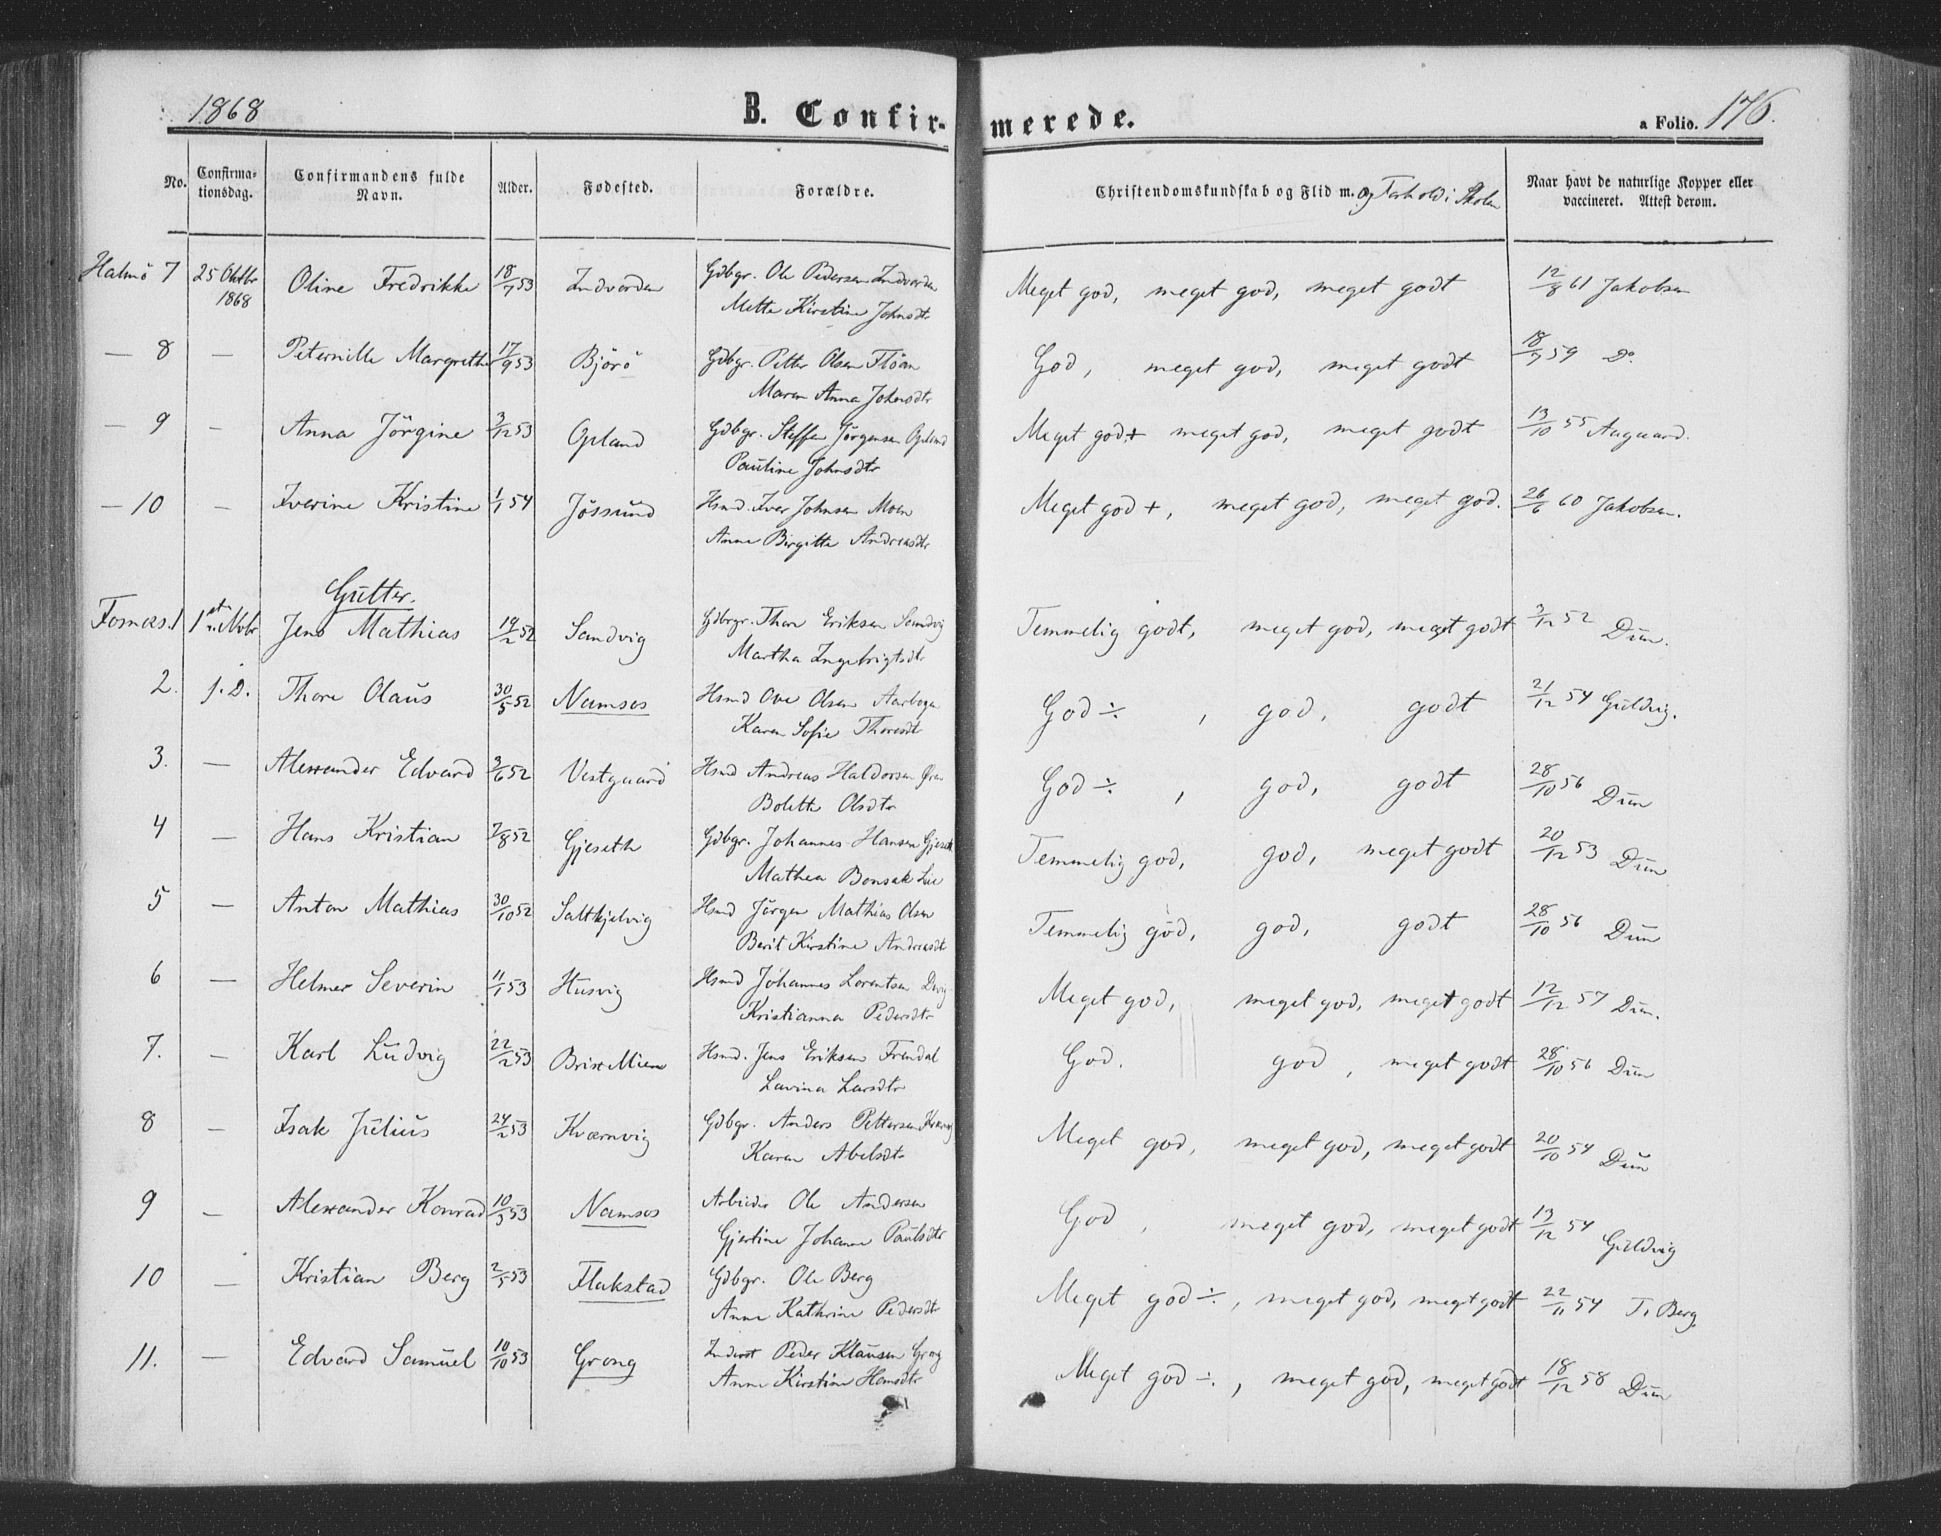 1868 B. Confir- merede. a Folio. 176.
No. Confirma-tionsdag. Confirmandens fulde Navn. Alder. Fødested. Forældre. Christendomskundskab og Flid m. og Forhold i Skolen Naar havt de naturlige Kopper eller vaccineret. Attest derom.
Halmö 7 25 Oktbr 1868 Oline Fredrikke 18/7 53 Indvorden Gdbgr. Ole Pedersen Indvorden Meget god, meget god, meget godt 12/8 61 Jakobsen
Mette Kirstine Johnsdtr
— 8 — Peternille Margrethe 17/9 53 Björö Gdbgr. Petter Olsen Flöan God, meget god, meget godt 18/7 59 Do.
Maren Anna Johnsdtr
— 9 — Anna Jörgine 3/12 53 Opland Gdbgr. Steffen Jörgensen Opland Meget god+ meget god, meget godt 13/10 55 Aagaard.
Pauline Johnsdtr
— 10 — Iverine Kristine 1/1 54 Jössund Hsmd. Iver Johnsen Moen Meget god +, meget god, meget god. 26/6 60 Jakobsen.
Anne Birgitte Andreasdtr
Gutter.
Fosnæs. 1 1ste Novbr Jens Mathias 14/2 52 Sandvig Gdbrgr. Thore Eriksen Sandvig Temmelig godt, meget god, meget godt 3/12 52 Dün.
Martha Ingebrigtsdtr
2. s. D. Thore Olaus 30/5 52 Namsos Hsmd Ove Olsen Aarbogen God ÷, god, godt 21/12 54 Guldvig.
Karen Sofie Thoresdt
3. — Alexander Edvard 3/6 52 Vestgaard Hsmd Andreas Haldorsen Øren God ÷, god, godt 28/10 56 Dün
Bolette Olsdtr
4 — Hans Kristian 7/8 52 Gjeseth Gdbgr. Johannes Hansen Gjeseth Temmelig god, god, meget godt 20/12 53 Dün
Mathea Bonsak
5 — Anton Mathias 30/10 52 Saltkjelvig Hsmd Jörgen Mathias Olsen Temmelig god, god, godt 28/10 56 Dün
Berit Kirstine Andreasdt
6 — Helmer Severin 11/1 53 Husvig Hsmd Johannes Lorentsen Meget god, meget god, meget godt 12/12 57 Dün.
Kristianna Pedersdtr
7. — Karl Ludvig 22/2 53 Hsmd. Jens Eriksen Frendal God. god, meget godt 28/10 56 Dün
Lavina Larsdtr
8 — Isak Julius 24/2 53 Kværnvig Gdbgr. Anders Pettersen Kværnvig Meget god, meget god, meget godt 20/10 54 Dün
Karen Abelsdtr
9 — Alexander Konrad 10/3 53 Namsos Arbeider Ole Andersen God, meget god, meget godt 13/12 54 Guldvig
Gjertine Johanne Paulsdtr
10 — Kristian Berg 2/5 53 Flakstad Gdbgr. Ole Berg Meget god ÷, meget god, meget godt 22/11 54 T. Berg
Anne Kathrine Pedersdtr
11. — Edvard Samuel 10/10 53 Grong Inderst Peder Klausen Grong Meget god ÷, meget god, meget godt 18/12 58 Dün
Anne Kirstine Hansdtr